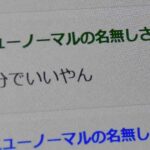 ューノーマルの名無しさ
分でいいやん
ューノーマルの名無しさ